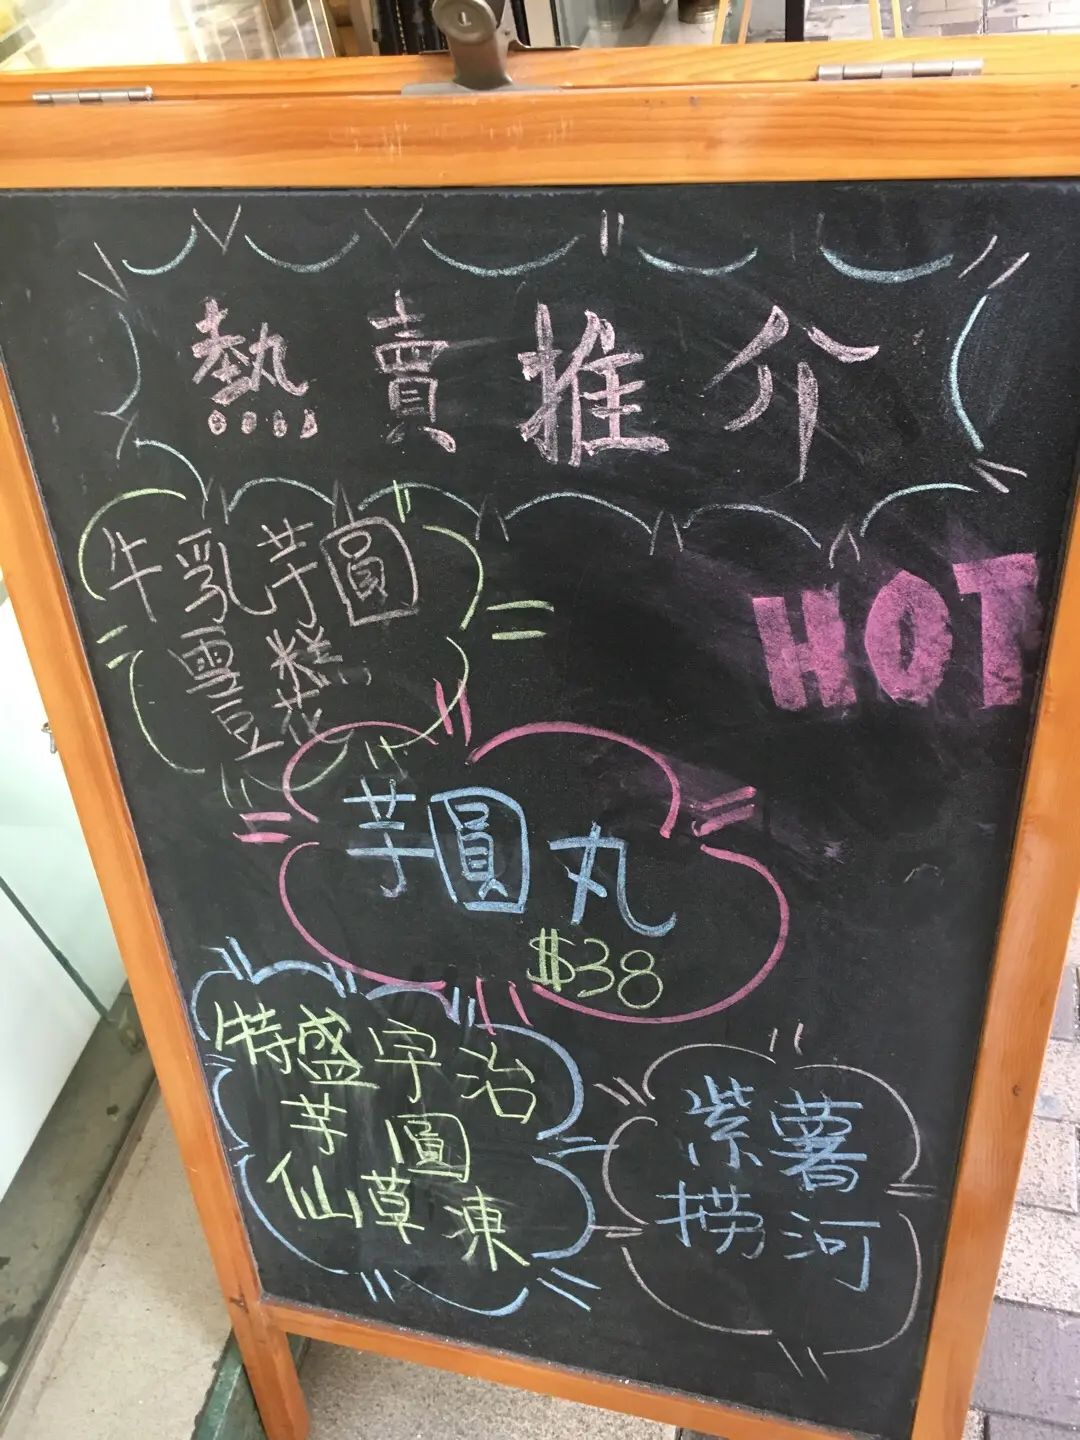 熱賣推介
牛乳芋圓
雪糕
豆花
HOT
芋圓丸
$38
特盛宇治
芋圓
仙草凍
紫薯
撈河